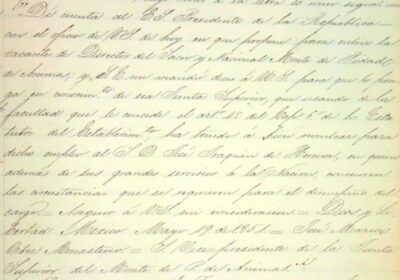 á la letra es como sigue=
Dí cuenta al E. S. Presidente de la Republica
con el oficio de V. S. de hoy en que propone para cubrir la
vacante de Director del Sacro y Nacional Monte de Piedad
de Animas; y S. E. me manda decir á V. S. para que lo pon
ga en conocimto. de esa Junta Superior, que usando de la
facultad que le concede el artº. 2º del Capº. 6º de los Esta
tutos del Establecimto., ha tenido á bien nombrar para
dicho empleo al S. D. José Joaquin de, en quien
además de sus grandes servicios á la Nacion, concurren
las circunstancias que se requieren para el desempeño del
cargo.= Aseguro á V. S. mi consideracion.= Dios y Li
bertad Mexico Mayo 19 de 1851.= José Maria
Ortiz Monasterio.= S. Vice-presidente de la Junta
Superior del Monte de P. de Animas.